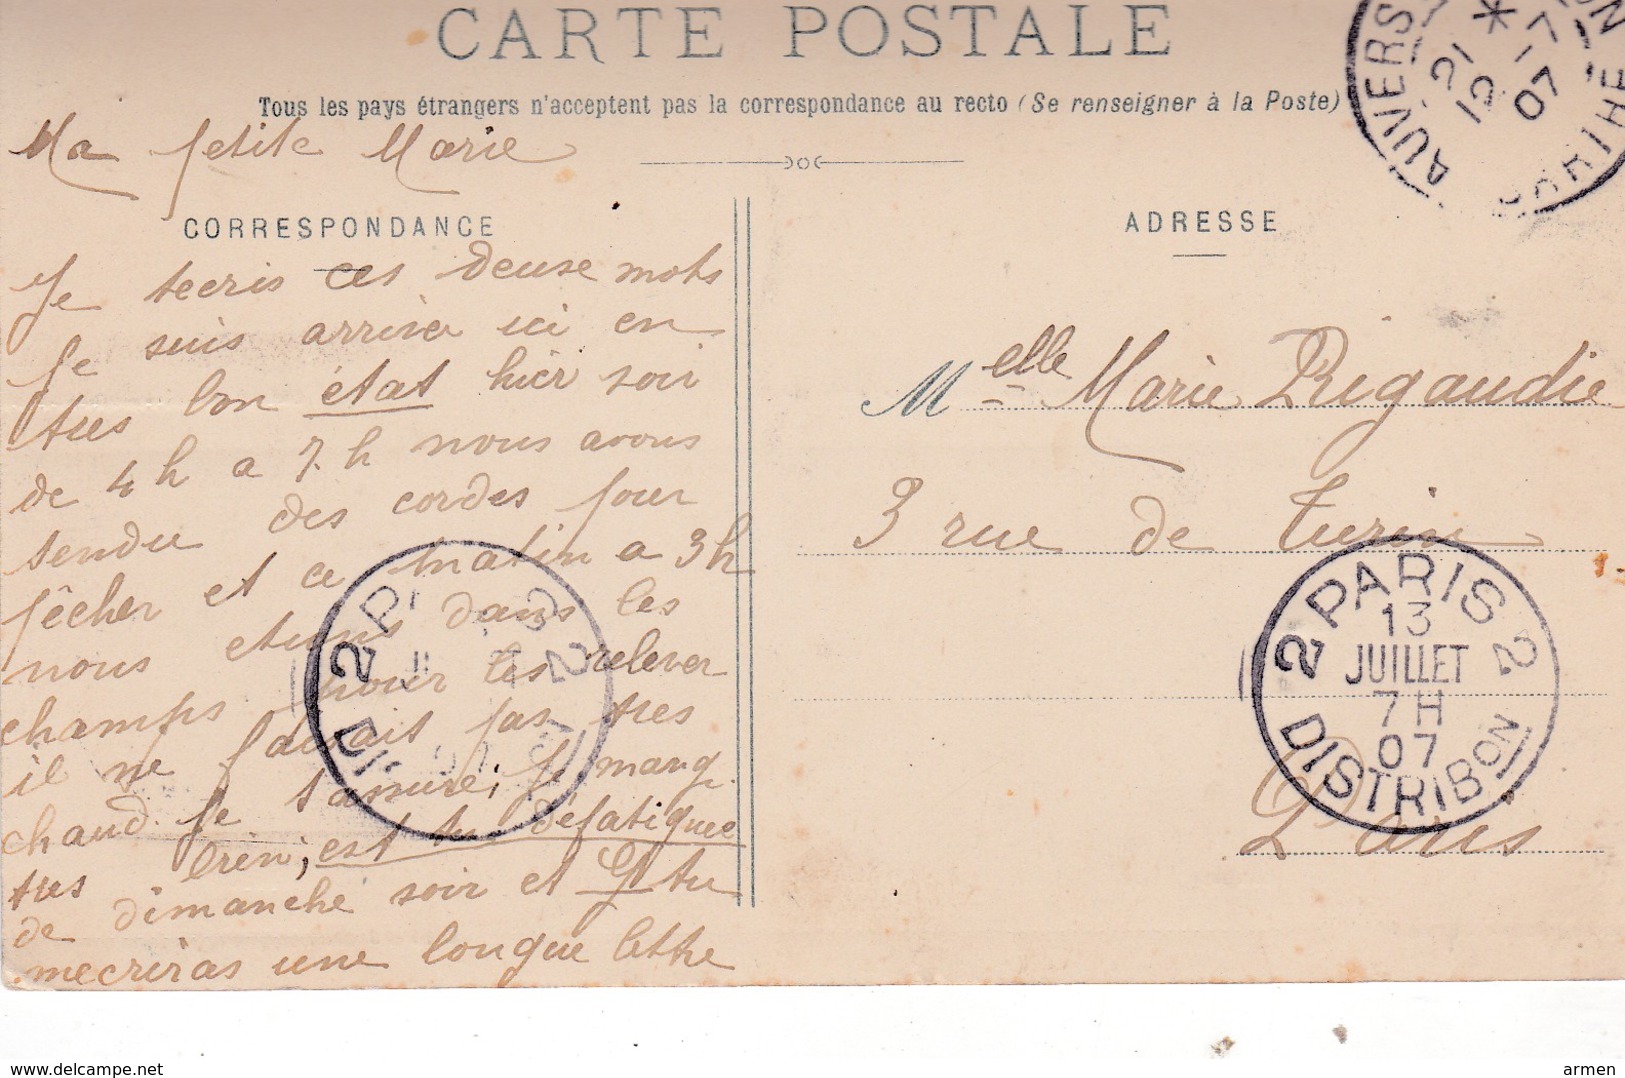 CARTE POSTALE
Tous les pays étrangers n'acceptent pas la correspondance au recto (Se renseigner à la Poste)
Ma petite Marie
CORRESPONDANCE
Je tecris ces deuse mots
Je suis arriver ici en
tres bon état hier soir
de 4 h a 7 h nous avons
tendu des cordes pour
pêcher et ce matin a 3h
nous etions dans les
champs pour les relever
il ne faisait pas tres
chaud. Je tassure, Je mang
tres bien, est tu défatiguee
de dimanche soir et tu
mecriras une longue lettre
ADRESSE
Melle Marie Rigaudie
3 rue de Turin
Paris
AUVERS
21 *
12 -7
07
SARTHE
2 PARIS 2
13
JUILLET
7 H
07
DISTRIBON
2 P
2
DI
www.delcampe.net
armen